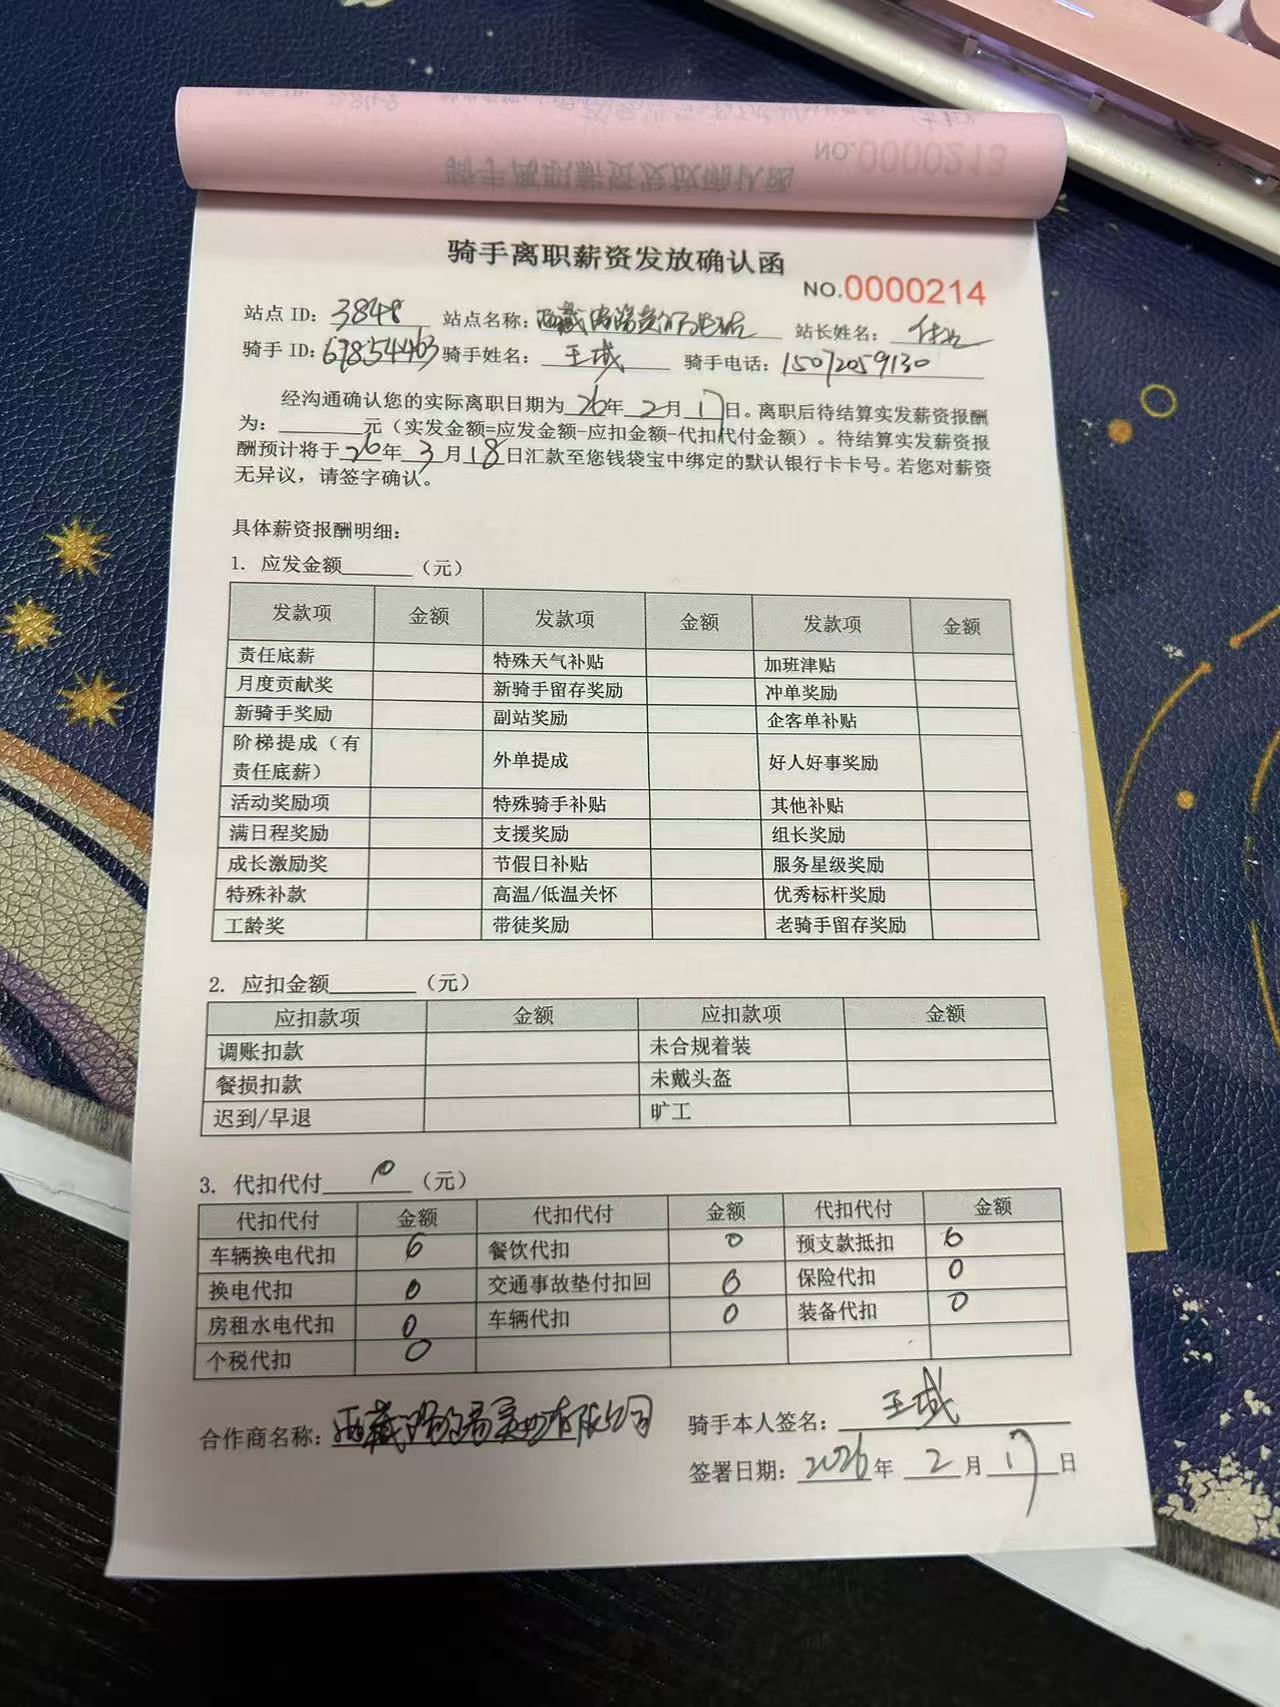 骑手离职薪资发放确认函
NO.0000214
站点 ID: 3848 站点名称: 西藏 站长姓名:
骑手 ID: 67854463 骑手姓名: 王域 骑手电话: 15072059130
经沟通确认您的实际离职日期为 26 年 2 月 17 日。离职后待结算实发薪资报酬
为:______元（实发金额=应发金额-应扣金额-代扣代付金额）。待结算实发薪资报
酬预计将于 26 年 3 月 18 日汇款至您钱袋宝中绑定的默认银行卡卡号。若您对薪资
无异议，请签字确认。
具体薪资报酬明细:
1. 应发金额______（元）
发款项 金额 发款项 金额 发款项 金额
责任底薪 特殊天气补贴 加班津贴
月度贡献奖 新骑手留存奖励 冲单奖励
新骑手奖励 副站奖励 企客单补贴
阶梯提成（有责任底薪） 外单提成 好人好事奖励
活动奖励项 特殊骑手补贴 其他补贴
满日程奖励 支援奖励 组长奖励
成长激励奖 节假日补贴 服务星级奖励
特殊补款 高温/低温关怀 优秀标杆奖励
工龄奖 带徒奖励 老骑手留存奖励
2. 应扣金额______（元）
应扣款项 金额 应扣款项 金额
调账扣款 未合规着装
餐损扣款 未戴头盔
迟到/早退 旷工
3. 代扣代付 0 （元）
代扣代付 金额 代扣代付 金额 代扣代付 金额
车辆换电代扣 0 餐饮代扣 0 预支款抵扣 0
换电代扣 0 交通事故垫付扣回 0 保险代扣 0
房租水电代扣 0 车辆代扣 0 装备代扣 0
个税代扣 0
合作商名称: 西藏 有限公司 骑手本人签名: 王域
签署日期: 2026 年 2 月 17 日